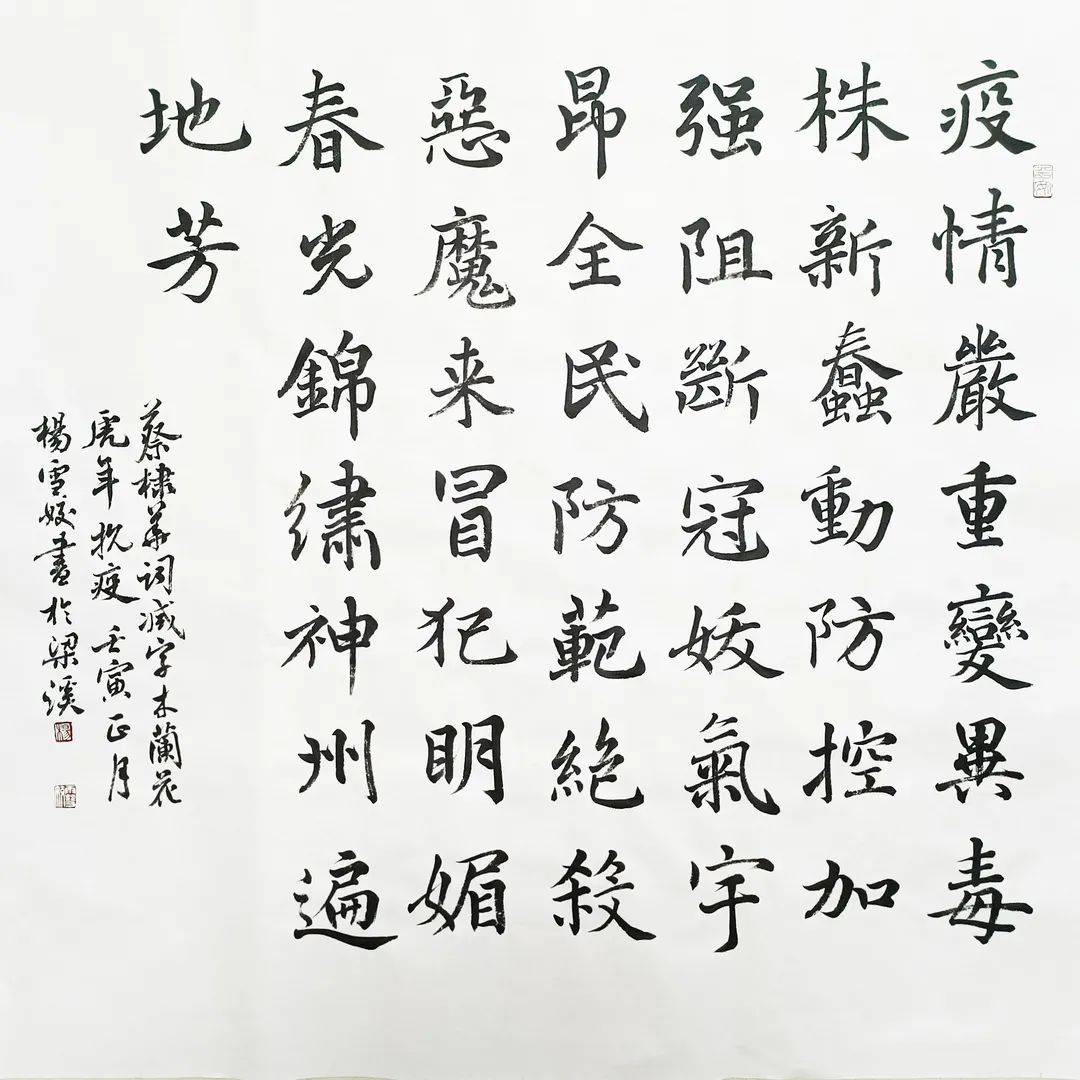 疫情嚴重變異毒
株新蠢動防控加
强阻斷冠妖氣宇
昂全民防範絶殺
惡魔来冒犯明媚
春光錦绣神州遍
地芳
蔡棣華词减字木蘭花
虎年抗疫壬寅正月
楊雪姣書於梁溪